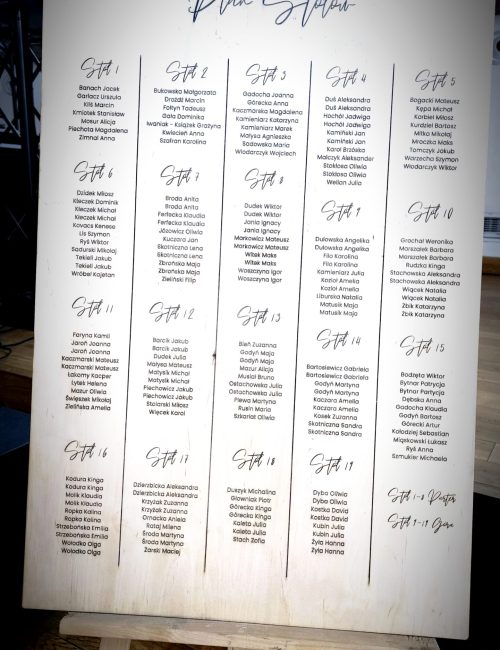 Plan Stołów
Stół 1
Banach Jacek
Garlacz Urszula
Kliś Marcin
Kmiotek Stanisław
Mazur Alicja
Piechota Magdalena
Zimnal Anna
Stół 2
Bukowska Małgorzata
Drożdż Marcin
Fołtyn Tadeusz
Gala Dominika
Iwaniak - Książek Grażyna
Kwiecień Anna
Szafran Karolina
Stół 3
Gadocha Joanna
Górecka Anna
Kaczmarska Magdalena
Kamieniarz Katarzyna
Kamieniarz Marek
Małysa Agnieszka
Sadowska Maria
Włodarczyk Wojciech
Stół 4
Duś Aleksandra
Duś Aleksandra
Hochół Jadwiga
Hochół Jadwiga
Kamiński Jan
Kamiński Jan
Karol Brzóska
Malczyk Aleksander
Stokłosa Oliwia
Stokłosa Oliwia
Welian Julia
Stół 5
Bogacki Mateusz
Kępa Michał
Korbiel Miłosz
Kurdziel Bartosz
Mitka Mikołaj
Mroczka Maks
Tomczyk Jakub
Warzecha Szymon
Włodarczyk Wiktor
Stół 6
Dzidek Miłosz
Kleczek Dominik
Kleczek Michał
Kleczek Michał
Kovacs Kenese
Lis Szymon
Ryś Wiktor
Sadurski Mikołaj
Tekieli Jakub
Tekieli Jakub
Wróbel Kajetan
Stół 7
Broda Anita
Broda Anita
Ferfecka Klaudia
Ferfecka Klaudia
Józowicz Oliwia
Kuczara Jan
Skotniczna Lena
Skotniczna Lena
Zbrońska Maja
Zbrońska Maja
Zieliński Filip
Stół 8
Dudek Wiktor
Dudek Wiktor
Jania Ignacy
Jania Ignacy
Markowicz Mateusz
Markowicz Mateusz
Witek Maks
Witek Maks
Woszczyna Igor
Woszczyna Igor
Stół 9
Dulowska Angelika
Dulowska Angelika
Filo Karolina
Filo Karolina
Kamieniarz Julia
Kozioł Amelia
Kozioł Amelia
Liburska Natalia
Matusik Maja
Matusik Maja
Stół 10
Grochal Weronika
Marszałek Barbara
Marszałek Barbara
Rudzka Kinga
Stachowska Aleksandra
Stachowska Aleksandra
Wiącek Natalia
Wiącek Natalia
Zbik Katarzyna
Zbik Katarzyna
Stół 11
Faryna Kamil
Jaroń Joanna
Jaroń Joanna
Kaczmarski Mateusz
Kaczmarski Mateusz
Łakomy Kacper
Lytek Helena
Mazur Oliwia
Święszek Mikołaj
Zielińska Amelia
Stół 12
Barcik Jakub
Barcik Jakub
Dudek Julia
Małysa Mateusz
Matyśik Michał
Matyśik Michał
Piechowicz Jakub
Piechowicz Jakub
Stolarski Miłosz
Więcek Karol
Stół 13
Bień Zuzanna
Godyń Maja
Godyń Maja
Mazur Alicja
Musiał Bruno
Ostachowska Julia
Ostachowska Julia
Plewa Martyna
Rusin Maria
Szkarłat Oliwia
Stół 14
Bartosiewicz Gabriela
Bartosiewicz Gabriela
Godyń Martyna
Godyń Martyna
Kaczara Amelia
Kaczara Amelia
Kosek Zuzanna
Skotniczna Sandra
Skotniczna Sandra
Stół 15
Badzęta Wiktor
Bytnar Patrycja
Bytnar Partycja
Dębska Anna
Gadocha Klaudia
Godyń Bartosz
Górecki Artur
Kołodziej Sebastian
Miąskowski Lukasz
Ryś Anna
Szmukier Michaela
Stół 16
Kadura Kinga
Kadura Kinga
Molik Klaudia
Molik Klaudia
Rapka Kalina
Rapka Kalina
Strzebońska Emilia
Strzebońska Emilia
Wołodko Olga
Wołodko Olga
Stół 17
Dzierzbicka Aleksandra
Dzierzbicka Aleksandra
Krzyżak Zuzanna
Krzyżak Zuzanna
Ornacka Aniela
Rataj Milena
Środa Martyna
Środa Martyna
Żarski Maciej
Stół 18
Duszyk Michalina
Głowniak Piotr
Górecka Kinga
Górecka Kinga
Kaleta Julia
Kaleta Julia
Stach Zofia
Stół 19
Dyba Oliwia
Dyba Oliwia
Kostka David
Kostka David
Kubin Julia
Kubin Julia
Żyła Hanna
Żyła Hanna
Stół 1-8 Parter
Stół 9-19 Góra